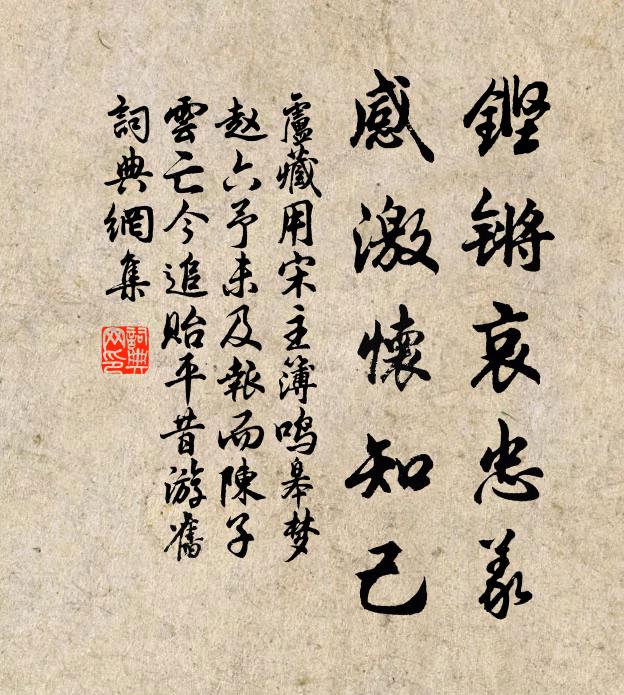 鏗锵哀忠義
感激懷知己
盧藏用宋主簿鳴皋梦
赵六予未及報而陳子
雲亡今追貽平昔游舊
詞典網集
詞典
网印